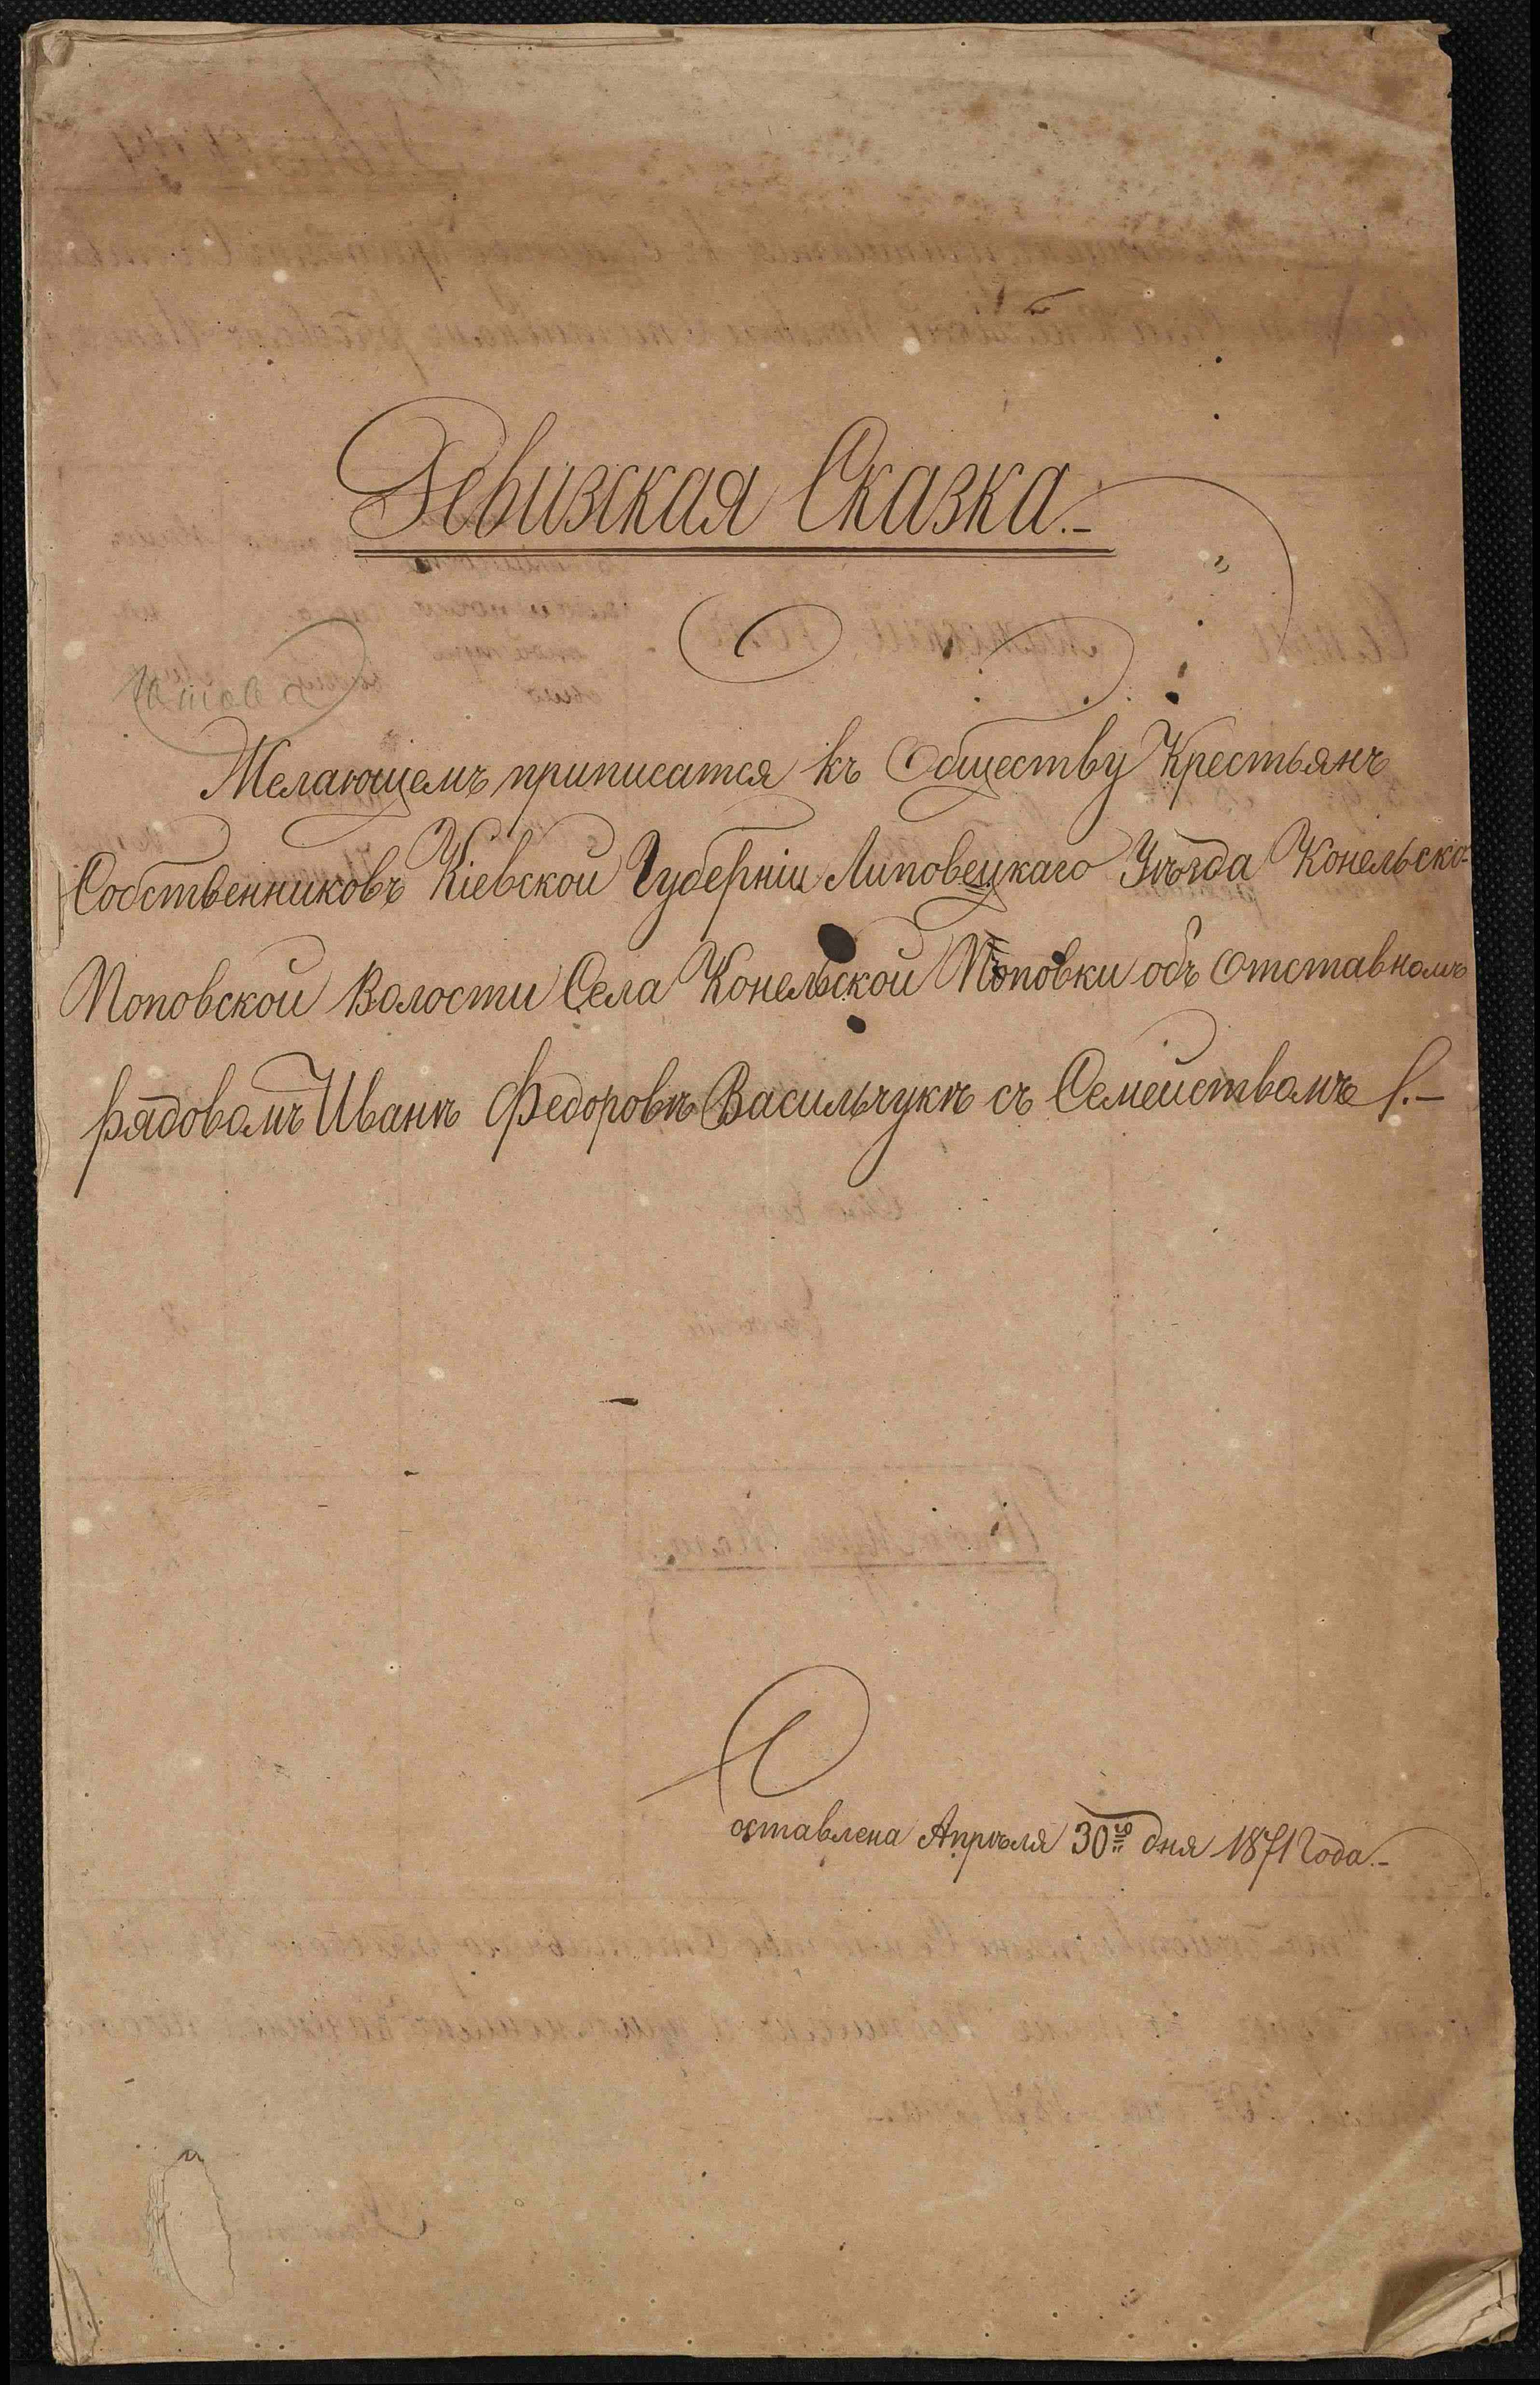 Ревизская Сказка.-
Желающемъ приписатся къ Обществу Крестьянъ
Собственниковъ Кіевской Губерніи Липовецкаго Уѣзда Конельско-
Поповской Волости Села Конельской Поповки объ отставномъ
рядовомъ Иванѣ Федоровѣ Васильчукѣ съ Семействомъ.-
Составлена Апрѣля 30го дня 1871 года.-